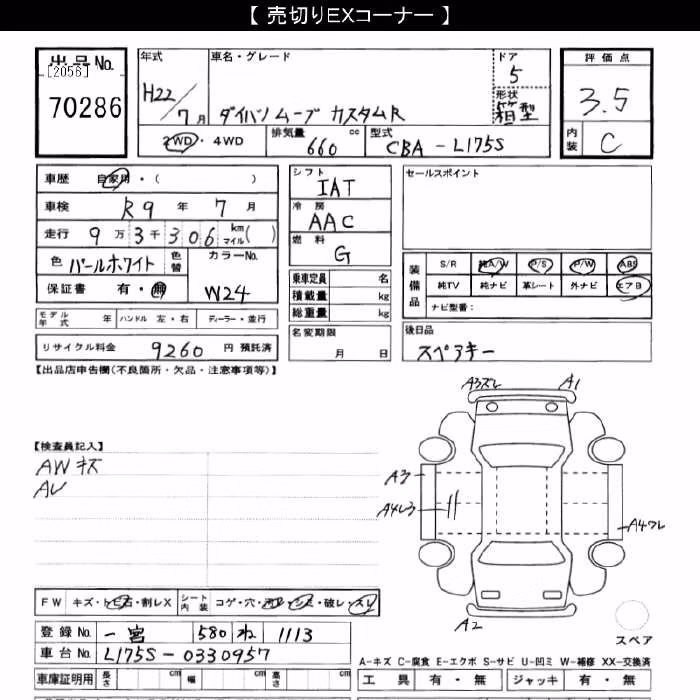 【 売切りEXコーナー 】
出品No.
[2056]
70286
年式
H22/7月
車名・グレード
ダイハツ ムーブ カスタムR
ドア
5
形状
箱型
2WD・4WD
排気量
660 cc
型式
CBA - L175S
評価点
3.5
内装
C
車歴 自家用・( )
車検 R9 年 7 月
走行 9万3千306 km マイル( )
色 パールホワイト 色替
カラーNo.
W24
保証書 有・無
モデル年式 年 ハンドル 左・右 ディーラー・並行
リサイクル料金 9260 円 預託済
シフト
IAT
冷房
AAC
燃料
G
乗車定員 名
積載量 kg
総重量 kg
名変期限
月 日
セールスポイント
装備品
S/R 純A/W P/S P/W ABS
純TV 純ナビ 革シート 外ナビ エアB
ナビ型番:
後日品
スペアキー
【出品店申告欄(不良箇所・欠品・注意事項等)】
【検査員記入】
AWキズ
A3ズレ
A1
A3
A4
A4
A2
スペア
FW キズ・トビ石・割レX シート内装 コゲ・穴・ ・シミ・破レ・スレ
登録No. 一宮 580 ね 1113
車台No. L175S-0330957
車庫証明用 長さ cm 幅 cm 高さ cm
A-キズ C-腐食 E-エクボ S-サビ U-凹ミ W-補修 XX-交換済
工具 有・無 ジャッキ 有・無